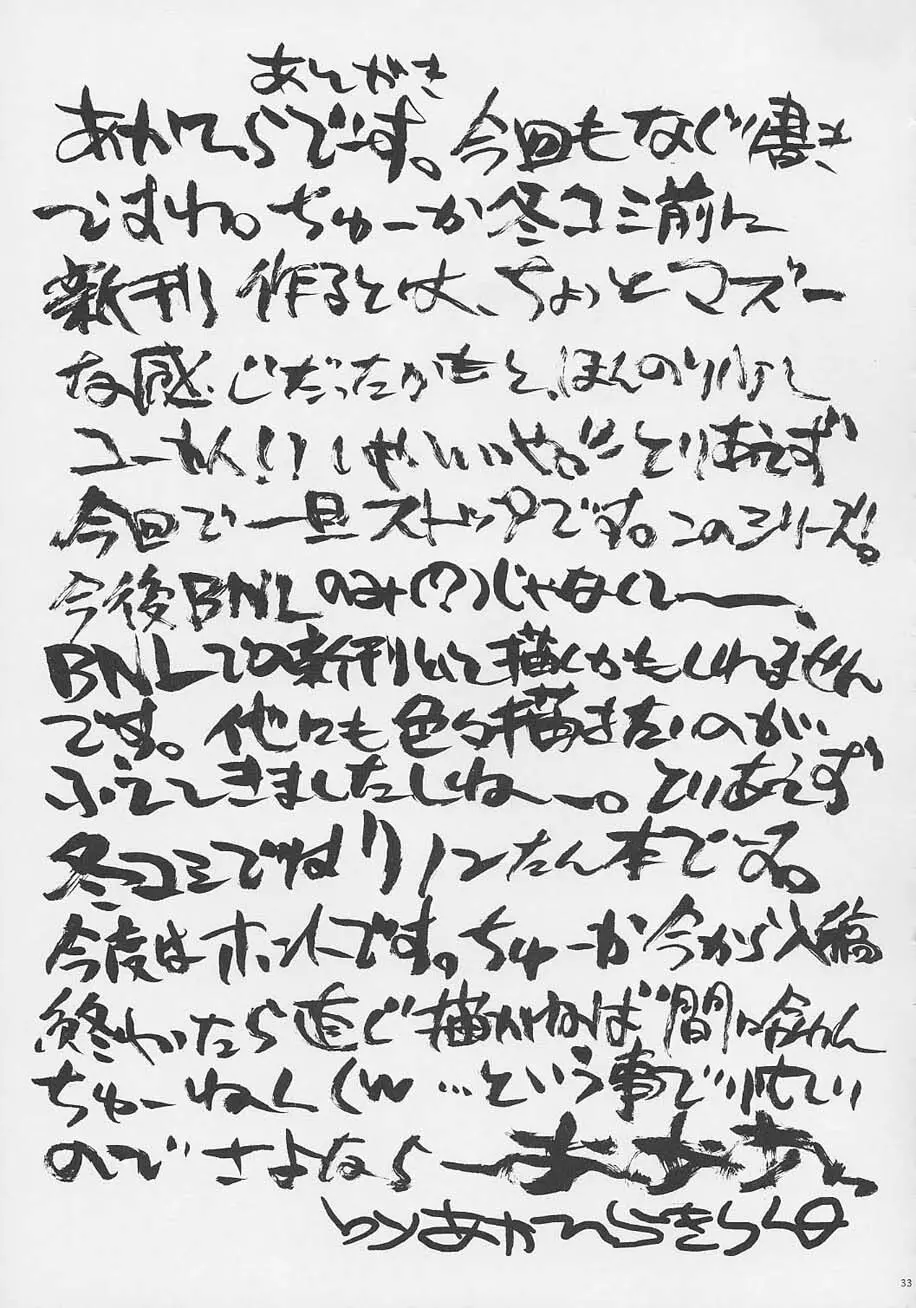 あとがき
あかてらでーす。今回もなぐり書き
ですね。ちゅーか冬コミ前に
新刊作るとは、ちょっとマズー
な感じだったりかもと、ほんのり
しやいいやぁ とりあえず
今回で一旦ストップです。このシリーズ!。
今後BNLのみ(?)じゃなくて――、
BNLでの新刊として描くかもしれません
です。他にも色々描きたいのが
ふえてきましたしねー。とりあえず
冬コミではリノンたん本でーす。
今度はホントです。ちゅーか今から入稿
終わったら直ぐ描かねば間に合わん
ちゅーねん(w …という事で忙しい
のでさよならー